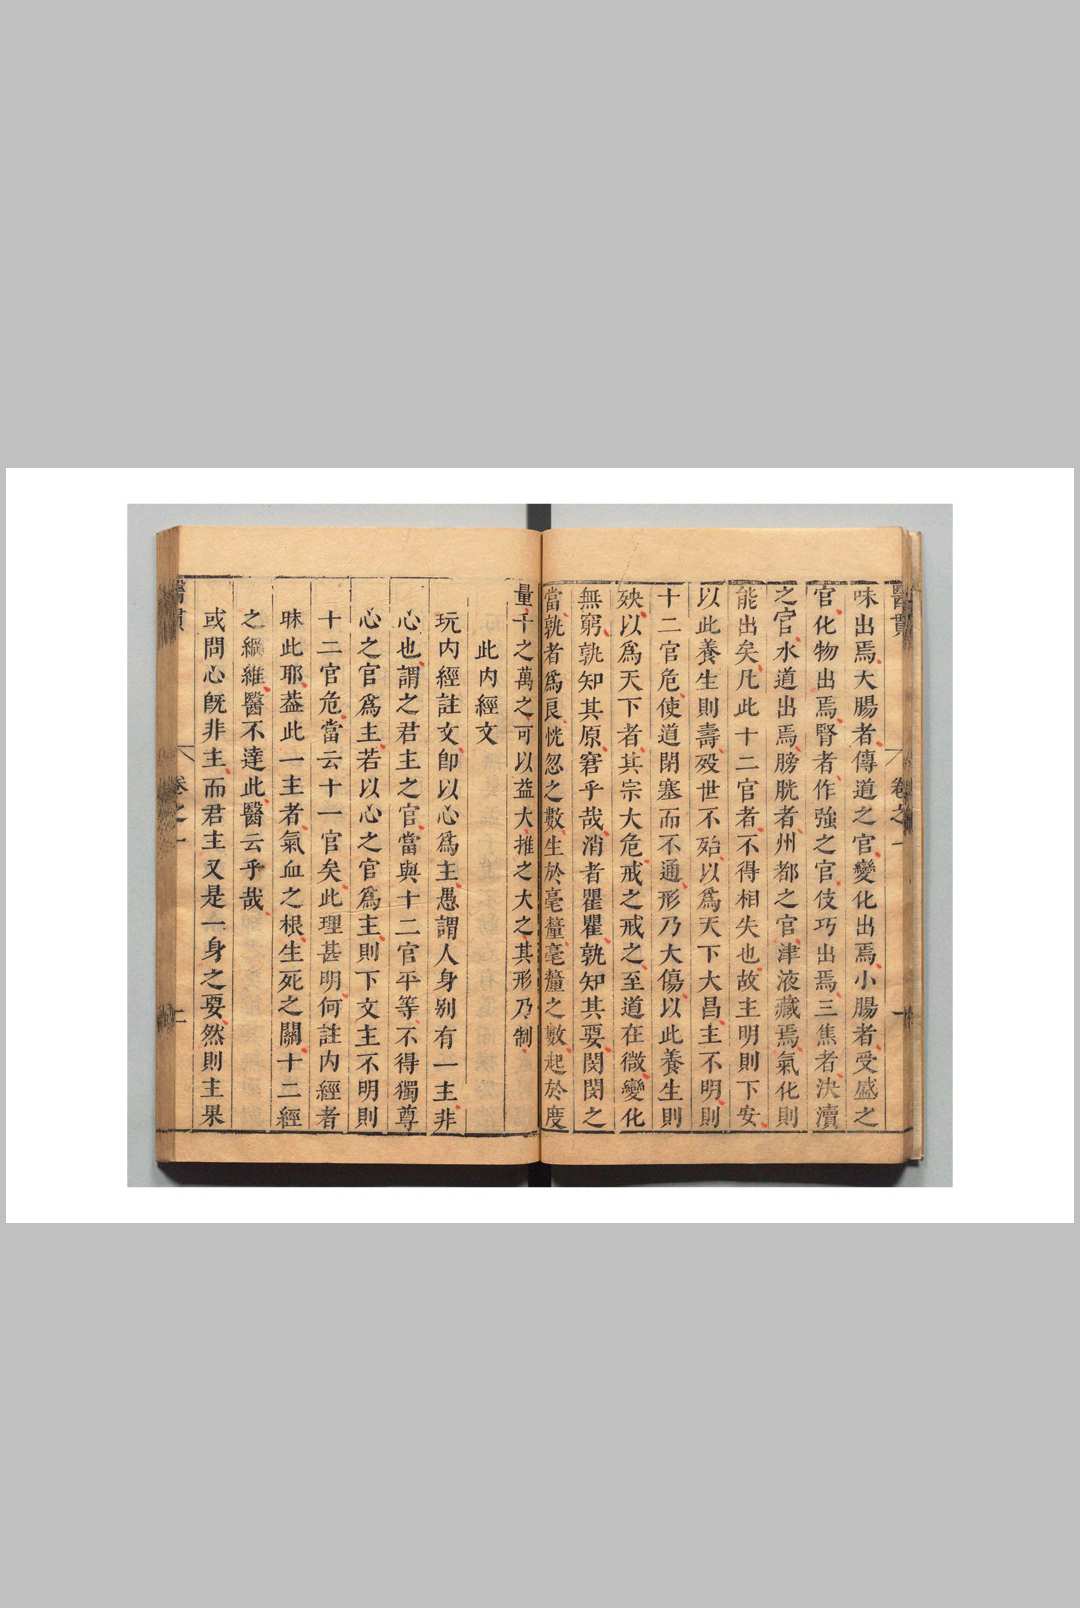 醫貫
卷之一
一
味出焉大腸者傳道之官變化出焉小腸者受盛之
官化物出焉腎者作強之官伎巧出焉三焦者決瀆
之官水道出焉膀胱者州都之官津液藏焉氣化則
能出矣凡此十二官者不得相失也故主明則下安
以此養生則壽歿世不殆以爲天下大昌主不明則
十二官危使道閉塞而不通形乃大傷以此養生則
殃以爲天下者其宗大危戒之戒之至道在微變化
無窮孰知其原窘乎哉消者瞿瞿孰知其要閔閔之
當孰者爲良恍忽之數生於毫釐毫釐之數起於度
量千之萬之可以益大推之大之其形乃制
此内經文
玩内經註文卽以心爲主愚謂人身别有一主非
心也謂之君主之官當與十二官平等不得獨尊
心之官爲主若以心之官爲主則下文主不明則
十二官危當云十一官矣此理甚明何註内經者
昧此耶葢此一主者氣血之根生死之關十二經
之綱維醫不達此醫云乎哉
或問心旣非主而君主又是一身之要然則主果
醫貫
卷之一
二